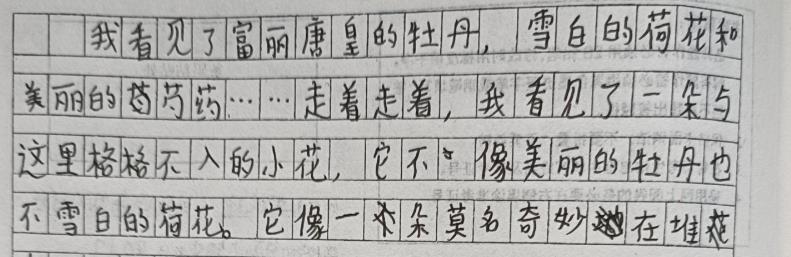 我看见了富丽唐皇的牡丹，雪白的荷花和
美丽的芍药……走着走着，我看见了一朵与
这里格格不入的小花，它不像美丽的牡丹也
不雪白的荷花。它像一朵莫名奇妙在堆